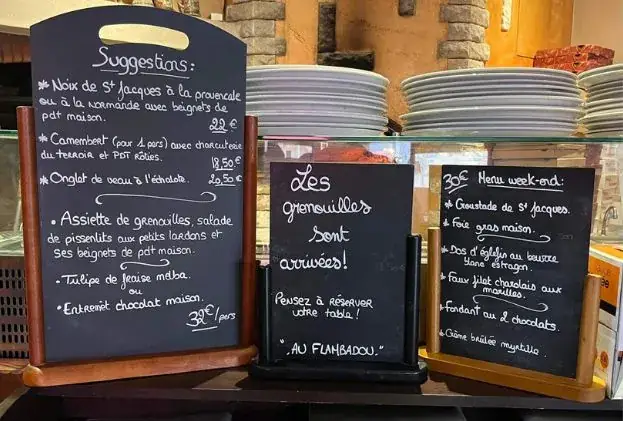 Suggestions:
* Noix de St Jacques à la provencale
ou à la normande avec beignets de
pdt maison.
22 €
* Camembert (pour 1 pers) avec charcuterie
du terroir et PDT Rôties.
18,50 €
* Onglet de veau à l'échalote.
20,50 €
• Assiette de grenouilles, salade
de pissenlits aux petits lardons et
ses beignets de pdt maison.
• Tulipe de fraise melba.
ou
• Entremet chocolat maison.
32€/pers
Les
grenouilles
sont
arrivées!
Pensez à réserver
votre table!
"AU FLAMBADOU."
30€ Menu week-end:
* Croustade de St Jacques.
* Foie gras maison.
* Dos d'églefin au beurre
blanc estragon.
* Faux filet charolais aux
morilles.
* Fondant au 2 chocolats.
* Crème brûlée myrtille.